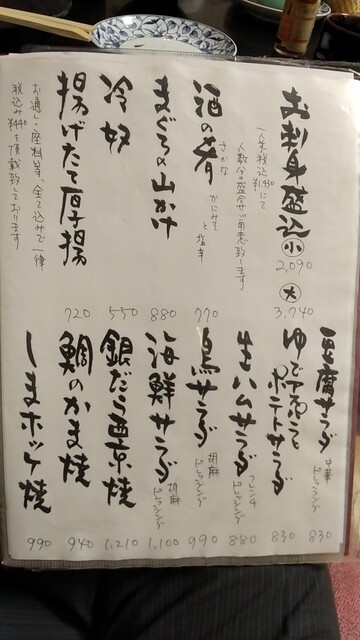 お刺身盛込 小 2,090
大 3,740
一人前税込 1,430にて
人数分の盛合せご用意致します
酒の肴 770
さかな
かにみそ
と塩辛
まぐろの山かけ 880
冷奴 550
揚げたて厚揚 720
お通し・座料等、全て込みで一律
税込み 440を頂戴致しております
豆腐サラダ 中華ドレッシング 830
ポテトサラダ 830
生ハムサラダ フレンチドレッシング 880
鳥サラダ 胡麻ドレッシング 990
海鮮サラダ 胡麻ドレッシング 1,100
銀だら西京焼 1,210
鯛のかま焼 940
しまホッケ焼 990